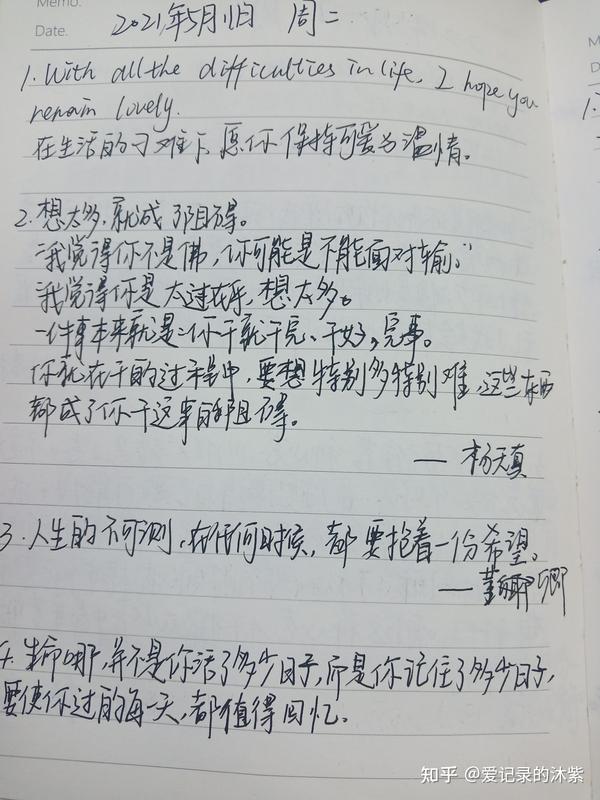 Memo.
Date. 2021年5月11日 周二
1. With all the difficulties in life, I hope you
remain lovely.
在生活的刁难下,愿你保持可爱与温情。
2. 想太多,就成了阻碍。
"我觉得你不是佛,你可能是不能面对输。"
我觉得你是太过在乎,想太多。
一件事本来就是:你干就干完、干好,完事。
你就在干的过程中,要想特别多特别难,这些东西
都成了你干这事的阻碍。
— 杨天真
3. 人生的不可测,在任何时候,都要抱着一份希望。
— 董卿
4. 生命哪,并不是你活了多少日子,而是你记住了多少日子,
要使你过的每一天,都值得回忆。
知乎 @爱记录的沐紫